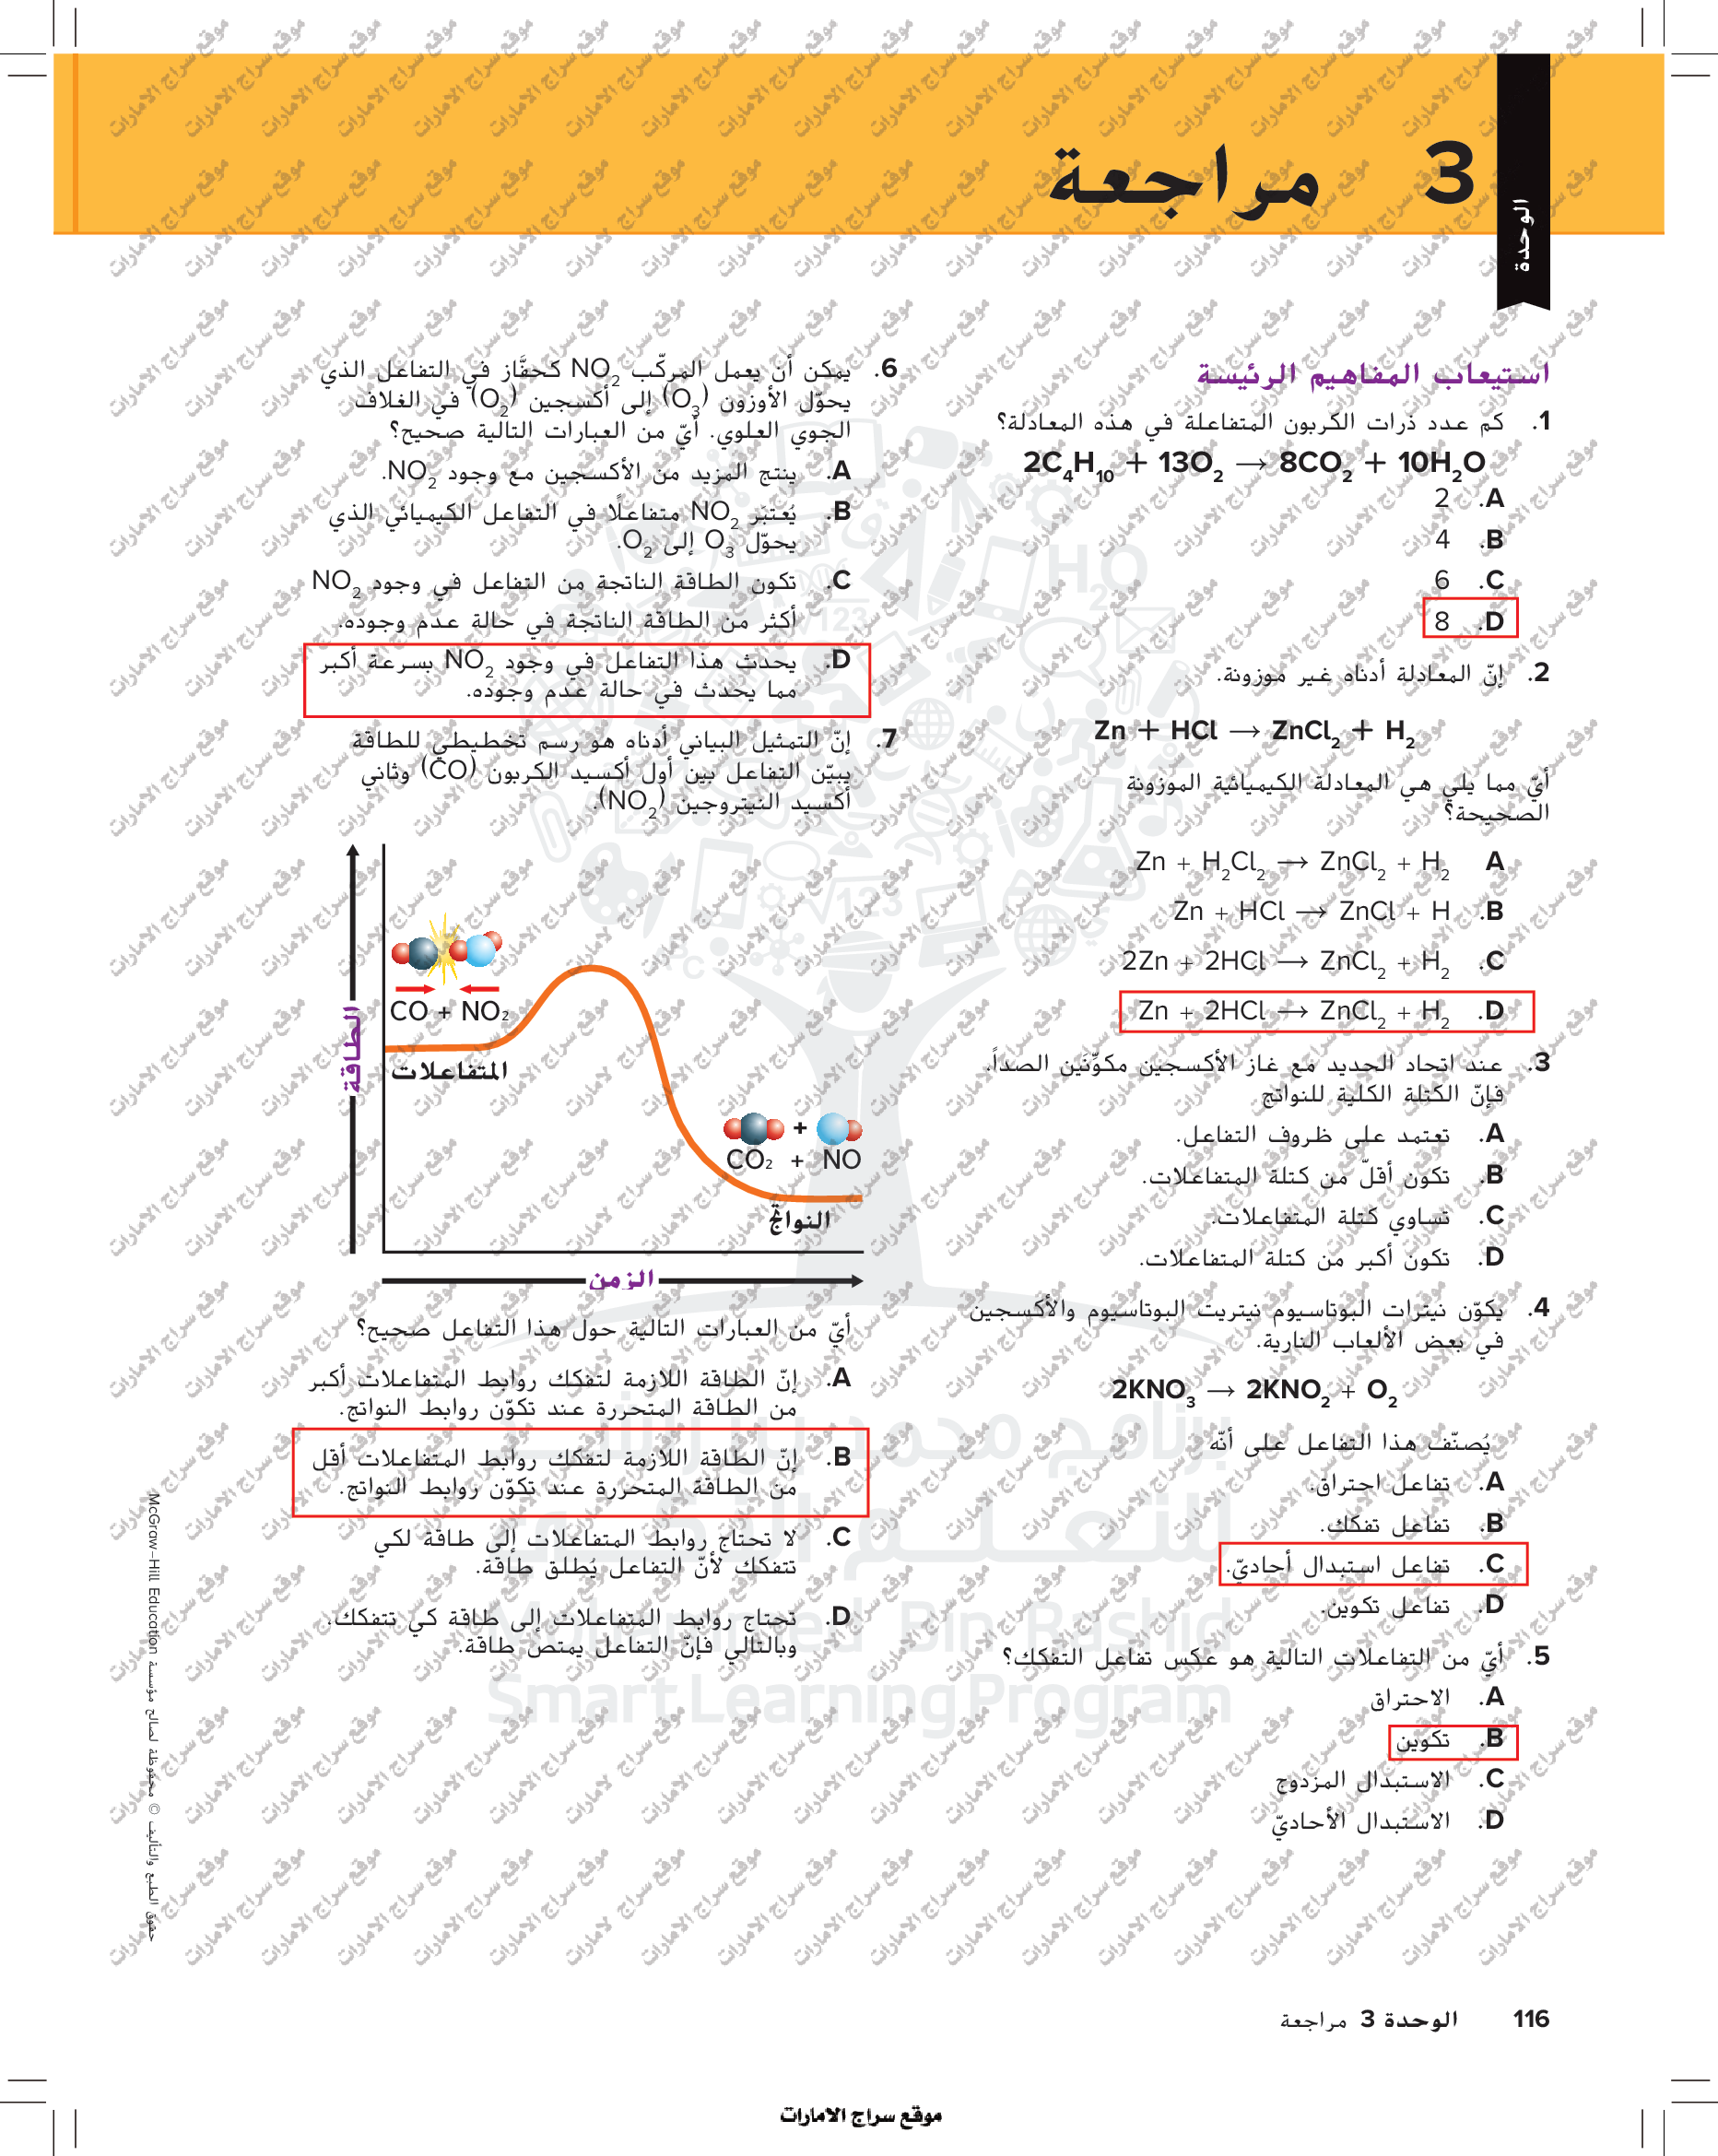 الوحدة
3 مراجعة
استيعاب المفاهيم الرئيسة
1. كم عدد ذرات الكربون المتفاعلة في هذه المعادلة؟
2C4H10 + 13O2 → 8CO2 + 10H2O
A. 2
B. 4
C. 6
D. 8
2. إنّ المعادلة أدناه غير موزونة.
Zn + HCl → ZnCl2 + H2
أيّ مما يلي هي المعادلة الكيميائية الموزونة
الصحيحة؟
A Zn + H2Cl2 → ZnCl2 + H2
B. Zn + HCl → ZnCl + H
C. 2Zn + 2HCl → ZnCl2 + H2
D. Zn + 2HCl → ZnCl2 + H2
3. عند اتحاد الحديد مع غاز الأكسجين مكوِّنَين الصدأ،
فإنّ الكتلة الكلية للنواتج
A. تعتمد على ظروف التفاعل.
B. تكون أقلّ من كتلة المتفاعلات.
C. تساوي كتلة المتفاعلات.
D. تكون أكبر من كتلة المتفاعلات.
4. يكوّن نيترات البوتاسيوم نيتريت البوتاسيوم والأكسجين
في بعض الألعاب النارية.
2KNO3 → 2KNO2 + O2
يُصنّف هذا التفاعل على أنّه
A. تفاعل احتراق.
B. تفاعل تفكك.
C. تفاعل استبدال أحاديّ.
D. تفاعل تكوين.
5. أيّ من التفاعلات التالية هو عكس تفاعل التفكك؟
A. الاحتراق
B. تكوين
C. الاستبدال المزدوج
D. الاستبدال الأحاديّ
6. يمكن أن يعمل المركّب NO2 كحفَّاز في التفاعل الذي
يحوّل الأوزون (O3) إلى أكسجين (O2) في الغلاف
الجوي العلوي. أيّ من العبارات التالية صحيح؟
A. ينتج المزيد من الأكسجين مع وجود NO2.
B. يُعتبَر NO2 متفاعلًا في التفاعل الكيميائي الذي
يحوّل O3 إلى O2.
C. تكون الطاقة الناتجة من التفاعل في وجود NO2
أكثر من الطاقة الناتجة في حالة عدم وجوده.
D. يحدث هذا التفاعل في وجود NO2 بسرعة أكبر
مما يحدث في حالة عدم وجوده.
7. إنّ التمثيل البياني أدناه هو رسم تخطيطي للطاقة
يبيّن التفاعل بين أول أكسيد الكربون (CO) وثاني
أكسيد النيتروجين (NO2).
الطاقة
CO + NO2
المتفاعلات
+
CO2 + NO
النواتج
الزمن
أيّ من العبارات التالية حول هذا التفاعل صحيح؟
A. إنّ الطاقة اللازمة لتفكك روابط المتفاعلات أكبر
من الطاقة المتحررة عند تكوّن روابط النواتج.
B. إنّ الطاقة اللازمة لتفكك روابط المتفاعلات أقل
من الطاقة المتحررة عند تكوّن روابط النواتج.
C. لا تحتاج روابط المتفاعلات إلى طاقة لكي
تتفكك لأنّ التفاعل يُطلق طاقة.
D. تحتاج روابط المتفاعلات إلى طاقة كي تتفكك،
وبالتالي فإنّ التفاعل يمتص طاقة.
Smart Learning Program
حقوق الطبع والتأليف © محفوظة لصالح مؤسسة McGraw-Hill Education
116 الوحدة 3 مراجعة
موقع سراج الامارات